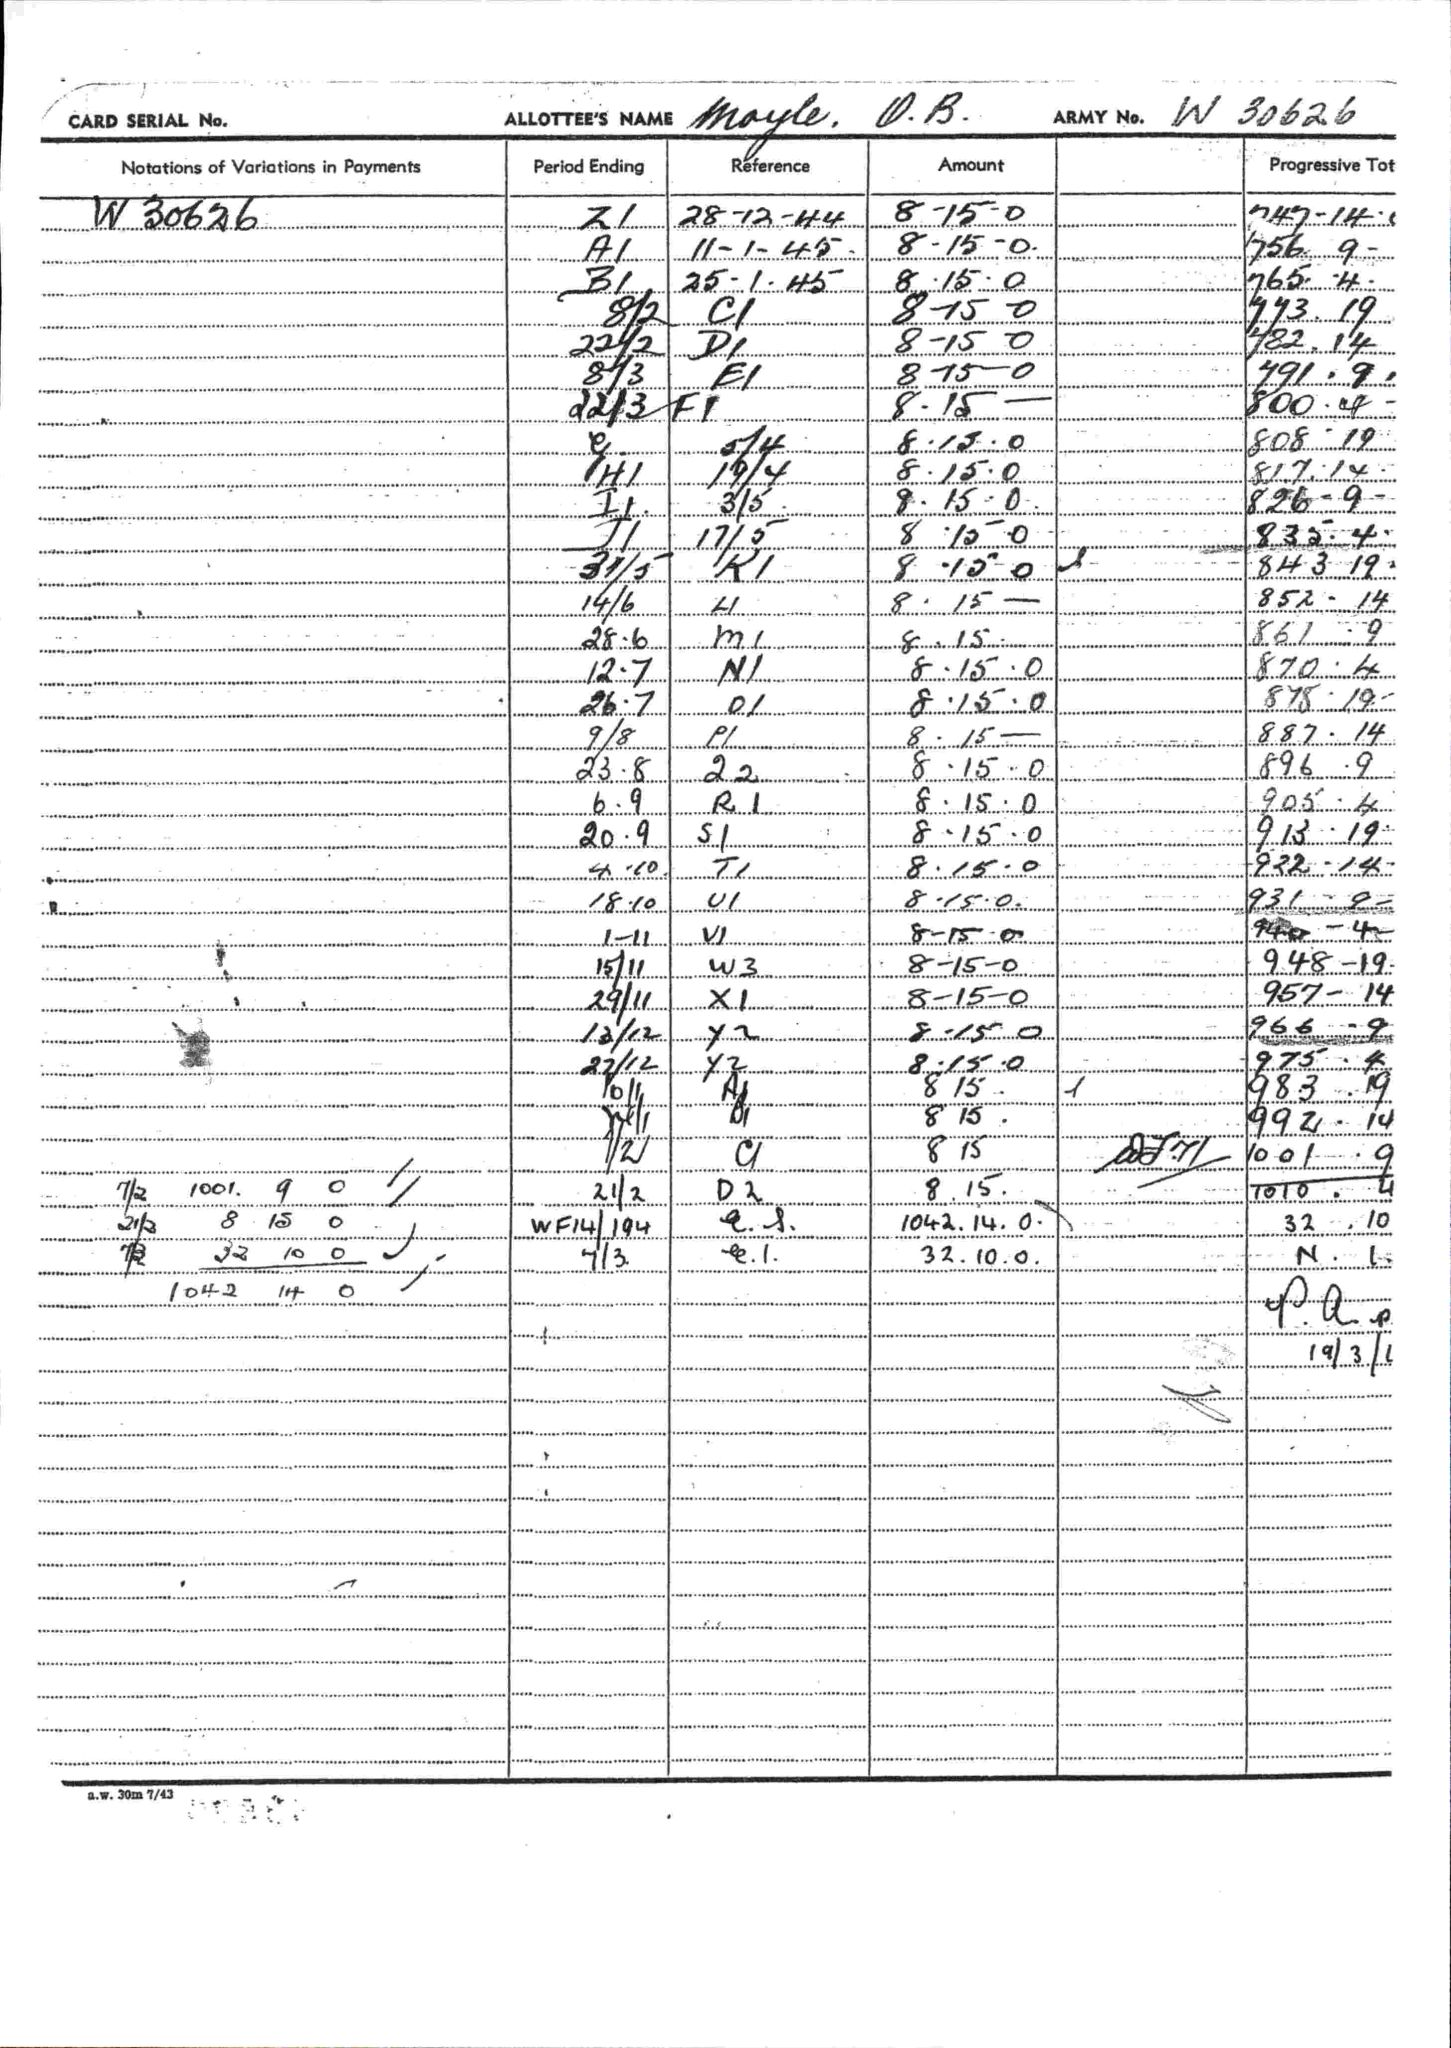 CARD SERIAL No. ALLOTTEE'S NAME Moyle. O. B. ARMY No. W 30626
Notations of Variations in Payments Period Ending Reference Amount Progressive Tot
W 30626 Z1 28-12-44 8-15-0 747-14-
A1 11-1-45. 8-15-0. 756 9-
B1 25-1.45 8.15.0 765.4.
8/2 C1 8-15 0 773.19
22/2 D1 8-15 0 782.14
8/3 E1 8-15-0 791.9.
22/3 F1 8.15 — 800.4-
G. 5/4 8.15.0 808 19
H1 19/4 8.15.0 817.14.
I1. 3/5 8.15.0. 826-9-
J1 17/5 8.15 0 835.4.
31/5 K1 8.15 0 843 19.
14/6 L1 8.15 — 852-14
28.6 M1 8.15. 861.9
12.7 N1 8.15.0 870.4
26.7 O1 8.15.0 878.19-
9/8 P1 8.15 — 887.14
23.8 22 8.15.0 896.9
6.9 R1 8.15.0 905.4
20.9 S1 8.15.0 913.19
4.10. T1 8.15.0 922.14-
18.10 U1 8.15.0. 931-9-
1-11 V1 8-15-0 940-4-
15/11 W3 8-15-0 948-19.
29/11 X1 8-15-0 957-14
13/12 Y2 8.15.0 966-9
27/12 Y2 8.15.0 975.4
10/1 A1 8 15. 983.19
8 15. 992.14
7/2 C1 8 15 1001.9
7/2 1001. 9 0 21/2 D2 8.15. 1010.4
21/2 8 15 0 WF14/194 E.S. 1042.14.0. 32.10
7/3 32 10 0 7/3 E.1. 32.10.0. N.1.
1042 14 0
P.A.
19/3/
a.w. 30m 7/43